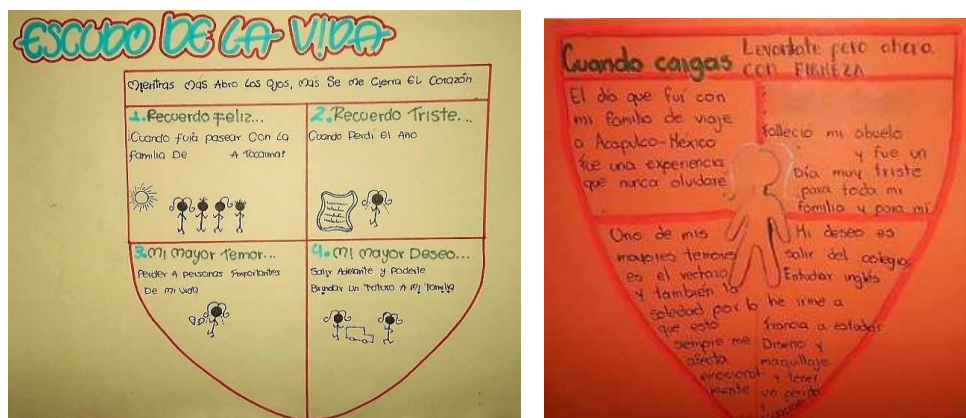 ESCUDO DE LA VIDA
Mientras Más Abro Los Ojos, Más Se Me Cierra EL Corazón
1. Recuerdo Feliz...
Cuando fui a pasear Con La
familia De A Tocaima
2. Recuerdo Triste...
Cuando Perdí El Año
3. Mi Mayor Temor...
Perder A personas Importantes
De mi vida
4. Mi Mayor Deseo...
Salir Adelante y Poderle
Brindar un Futuro A Mi Familia
Cuando caigas
Levantate pero ahora
CON FIRMEZA
El día que fuí con
mi familia de viaje
a Acapulco-México
fue una experiencia
que nunca olvidare
falleció mi abuelo
y fue un
Día muy triste
para toda mi
familia y para mi
Uno de mis
mayores temores
es el rechazo
y también la
soledad por lo
que esto
siempre me
afecta
emocional
mente
Mi deseo es
salir del colegio
Estudiar inglés
he irme a
francia a estudiar
Diseño y
maquillaje
y tener